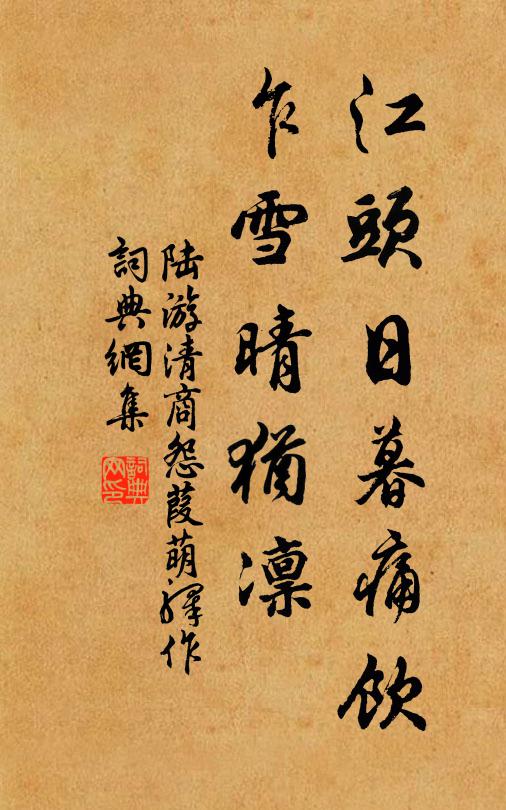 江頭日暮痛飲
乍雪晴猶凛
陆游清商怨葭萌驛作
詞典網集
詞典網印